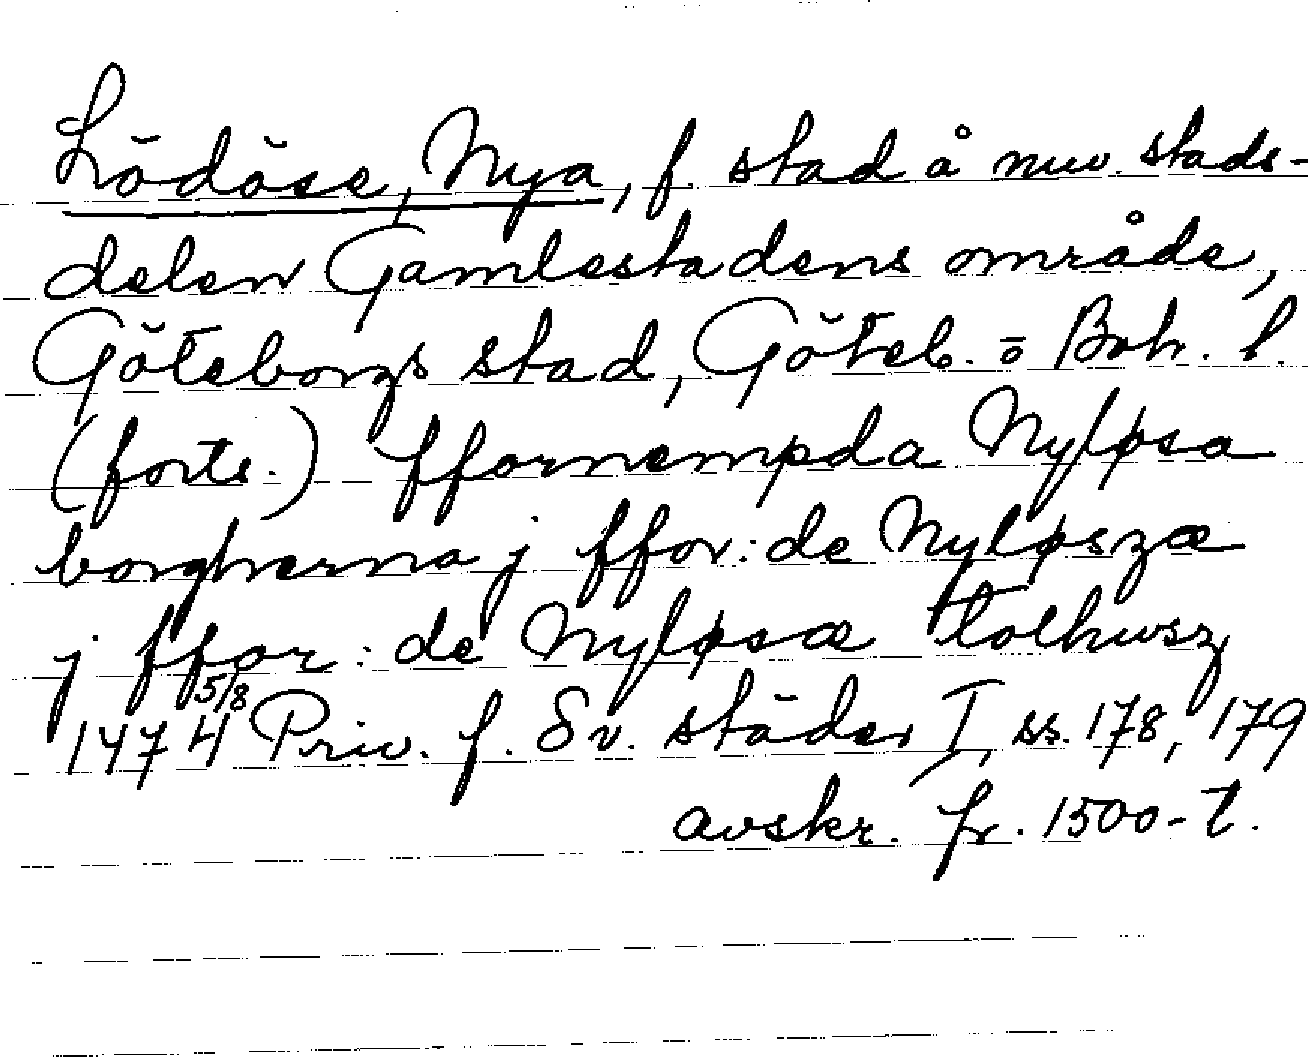 Lödöse, Nya, f. stad å nuv. stads-
delen Gamlestadens område,
Göteborgs stad, Göteb. o Boh. l.
(forts.) ffornempda Nyløsa
borgherna j ffor: de Nyløszæ
j ffor: de Nyløsæ tolhusz
1474 5/8 Priv. f. Sv. städer I, ss. 178, 179
avskr. fr. 1500-t.